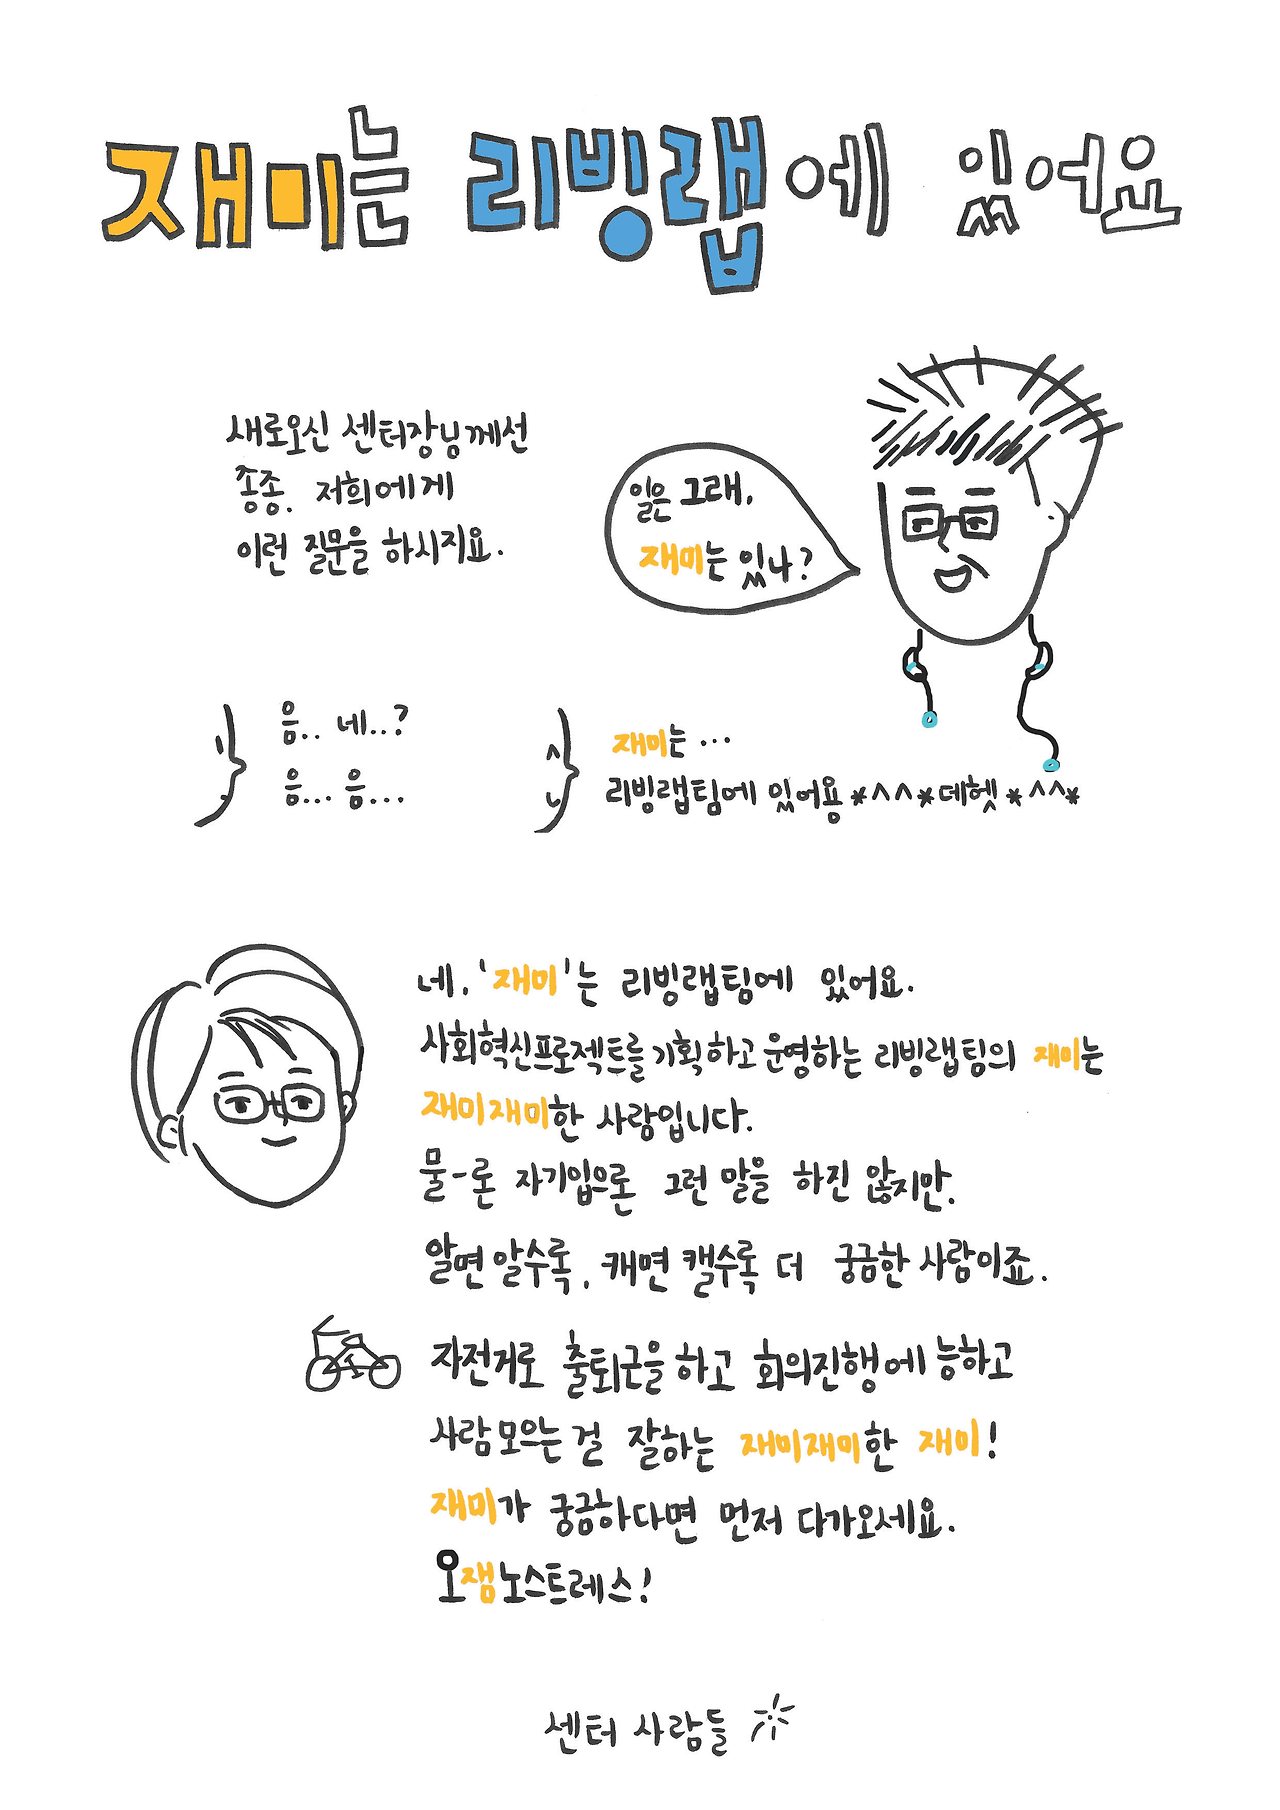 재미는 리빙랩에 있어요
새로오신 센터장님께선
종종. 저희에게
이런 질문을 하시지요.
일은 그래,
재미는 있나?
음.. 네..?
음... 음...
재미는 ...
리빙랩팀에 있어용 *^^*데헷*^^*
네. '재미'는 리빙랩팀에 있어요.
사회혁신프로젝트를 기획하고 운영하는 리빙랩팀의 재미는
재미재미한 사람입니다.
물-론 자기입으론 그런 말을 하진 않지만.
알면 알수록, 캐면 캘수록 더 궁금한 사람이죠.
자전거로 출퇴근을 하고 회의진행에 능하고
사람 모으는 걸 잘하는 재미재미한 재미!
재미가 궁금하다면 먼저 다가오세요.
오잼노스트레스!
센터 사람들